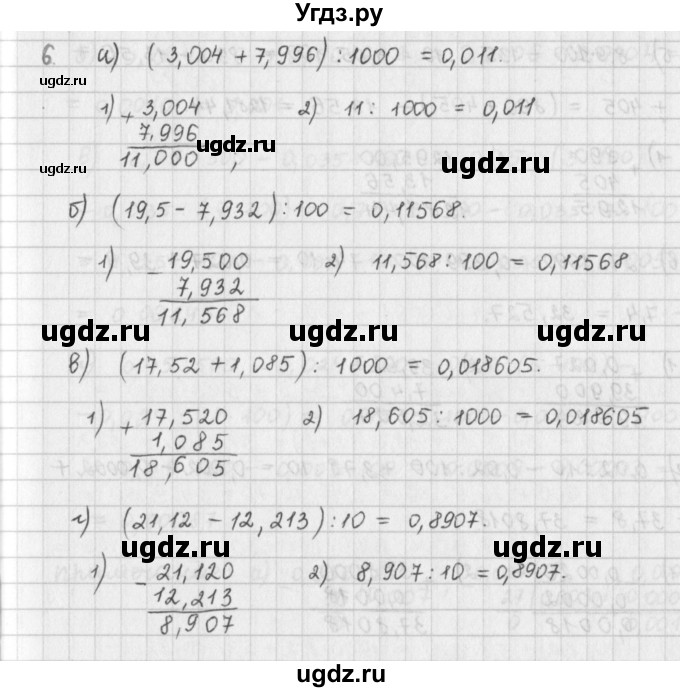 Угдз.ру
6. а) (3,004 + 7,996) : 1000 = 0,011.
1) + 3,004 2) 11 : 1000 = 0,011
7,996
11,000 ,
б) (19,5 - 7,932) : 100 = 0,11568.
1) - 19,500 2) 11,568 : 100 = 0,11568
7,932
11,568
в) (17,52 + 1,085) : 1000 = 0,018605.
1) + 17,520 2) 18,605 : 1000 = 0,018605
1,085
18,605
г) (21,12 - 12,213) : 10 = 0,8907.
1) - 21,120 2) 8,907 : 10 = 0,8907.
12,213
8,907
ugdz.ru
ugdz.ru
ugdz.ru
ugdz.ru
ugdz.ru
ugdz.ru
ugdz.ru
ugdz.ru
ugdz.ru
ugdz.ru
ugdz.ru
ugdz.ru
ugdz.ru
ugdz.ru